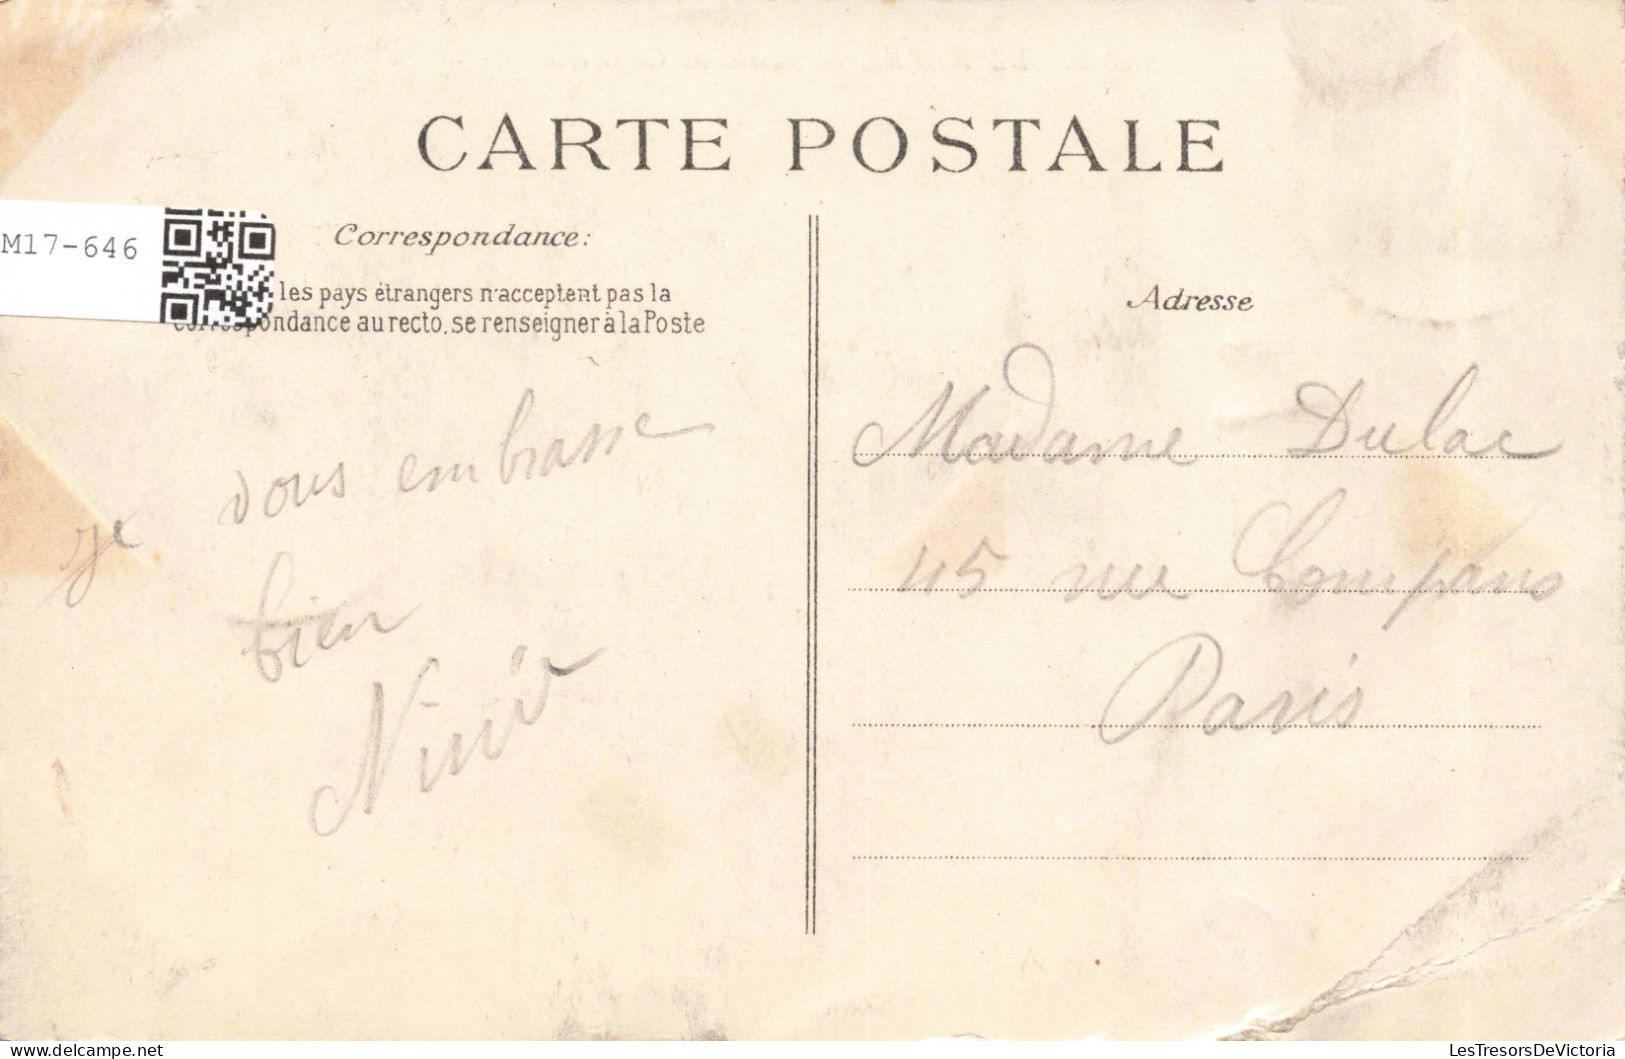 CARTE POSTALE
M17-646
Correspondance:
les pays étrangers n'acceptent pas la
correspondance au recto, se renseigner à la Poste
Adresse
je vous embrasse
bien
Ninie
Madame Dulac
45 rue Compans
Paris
LesTresorsDeVictoria